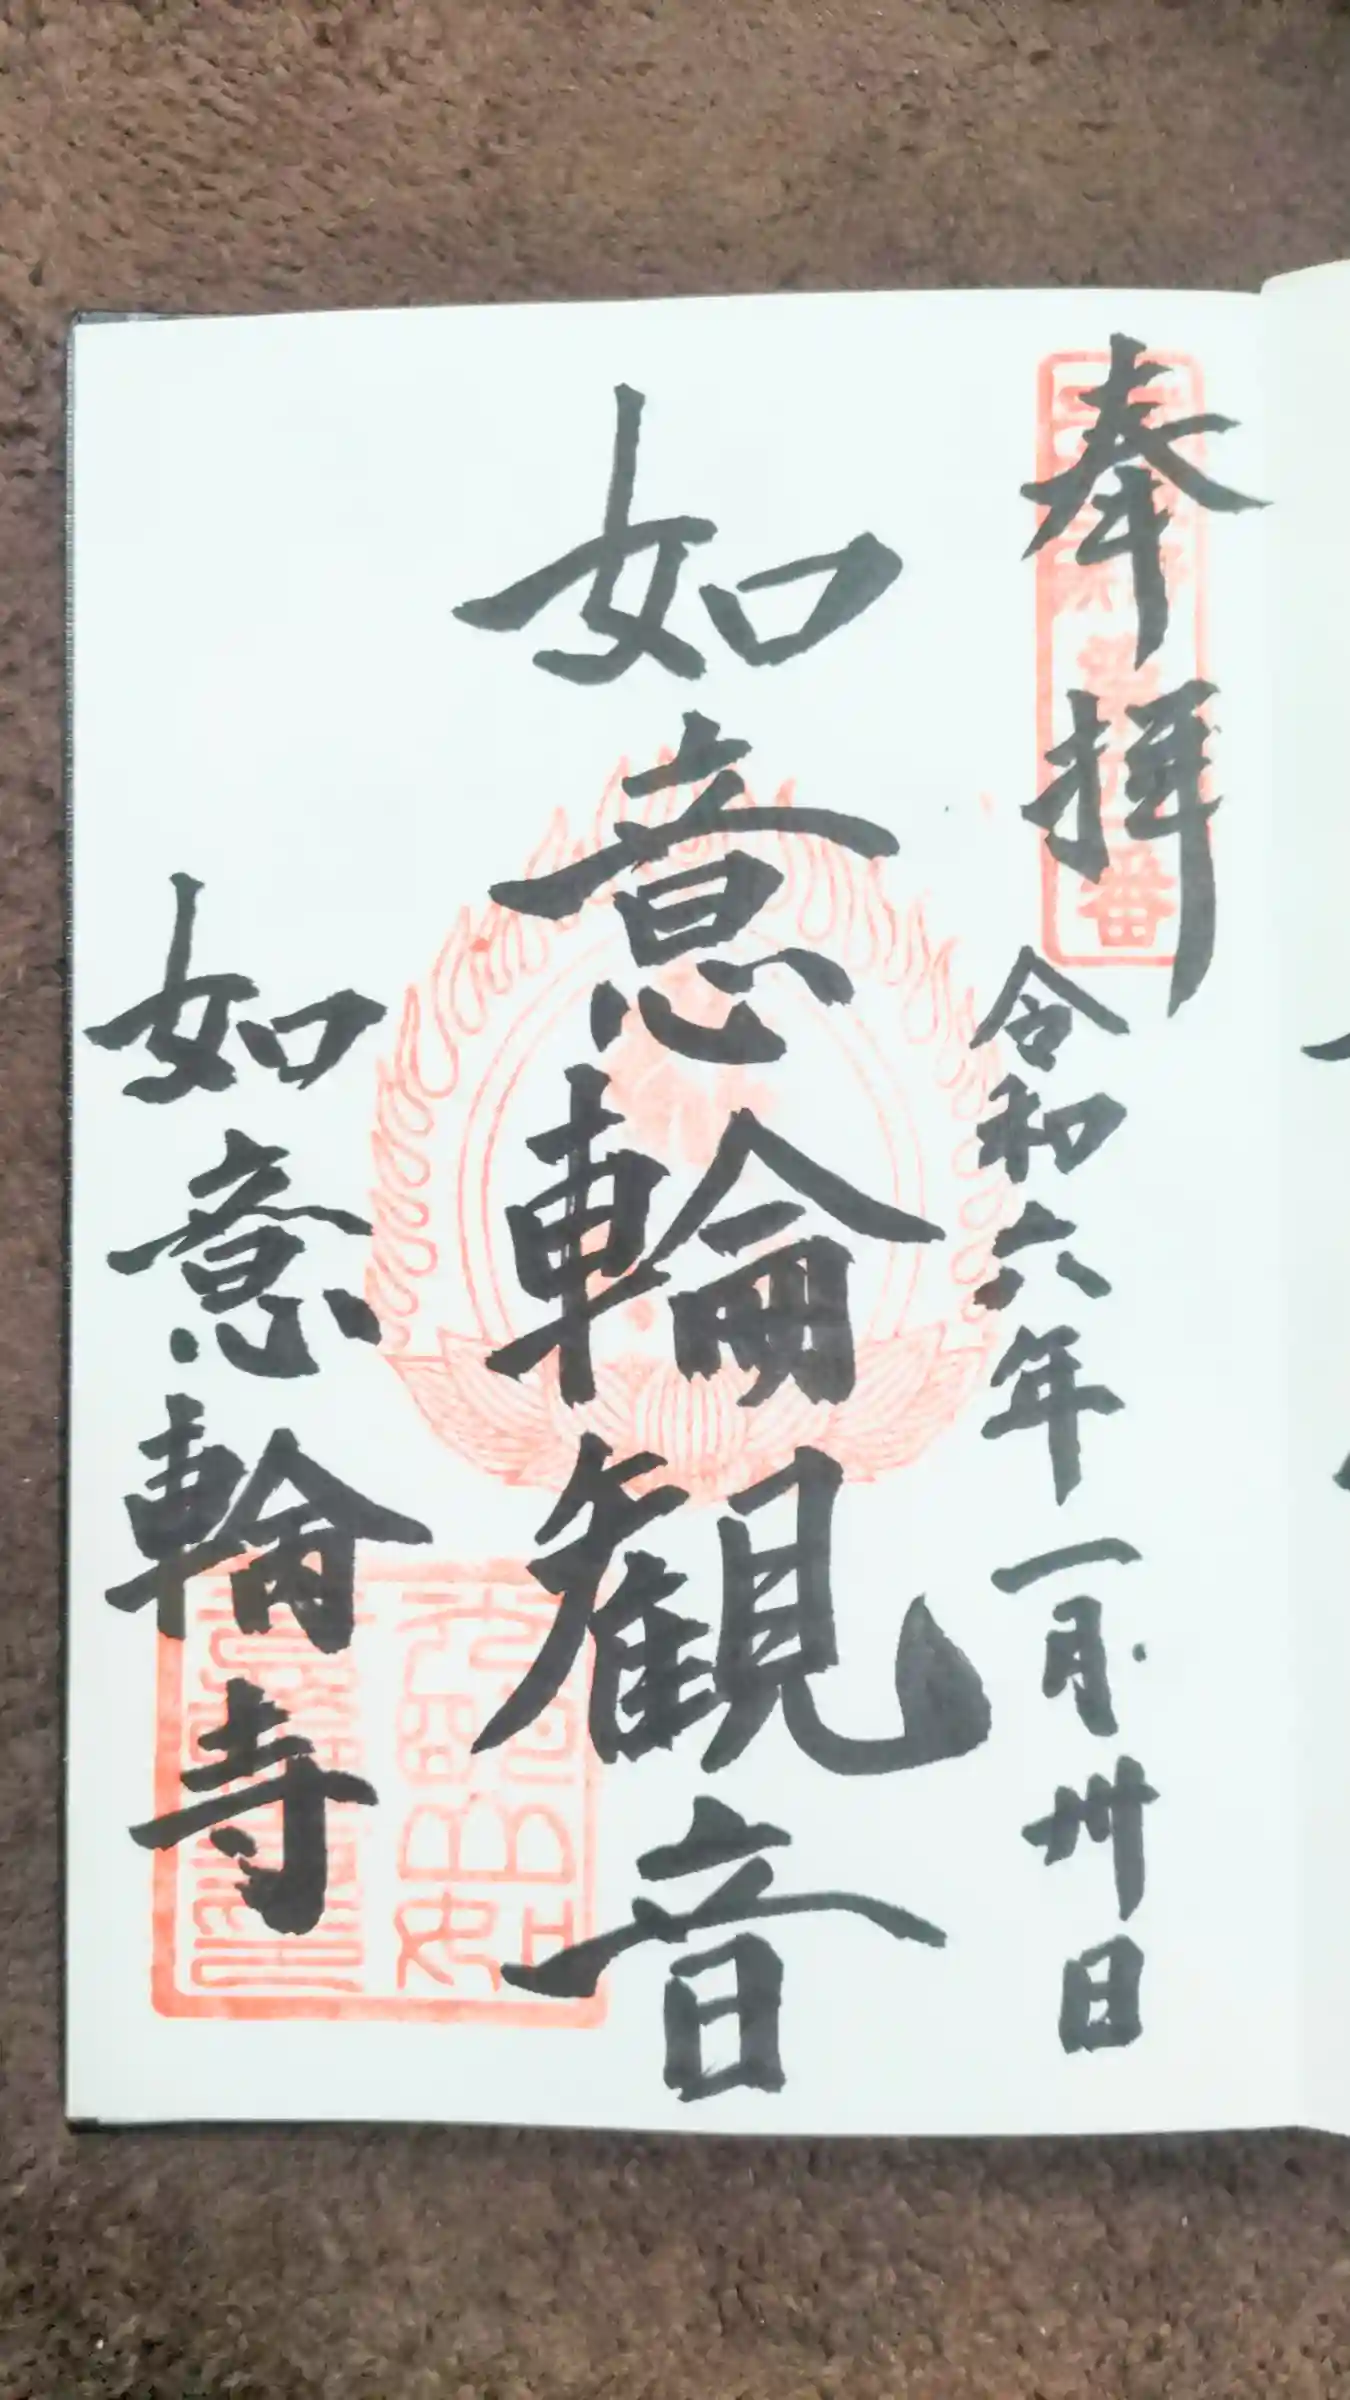 奉拝
令和六年一月卅日
如意輪観音
如意輪寺
番